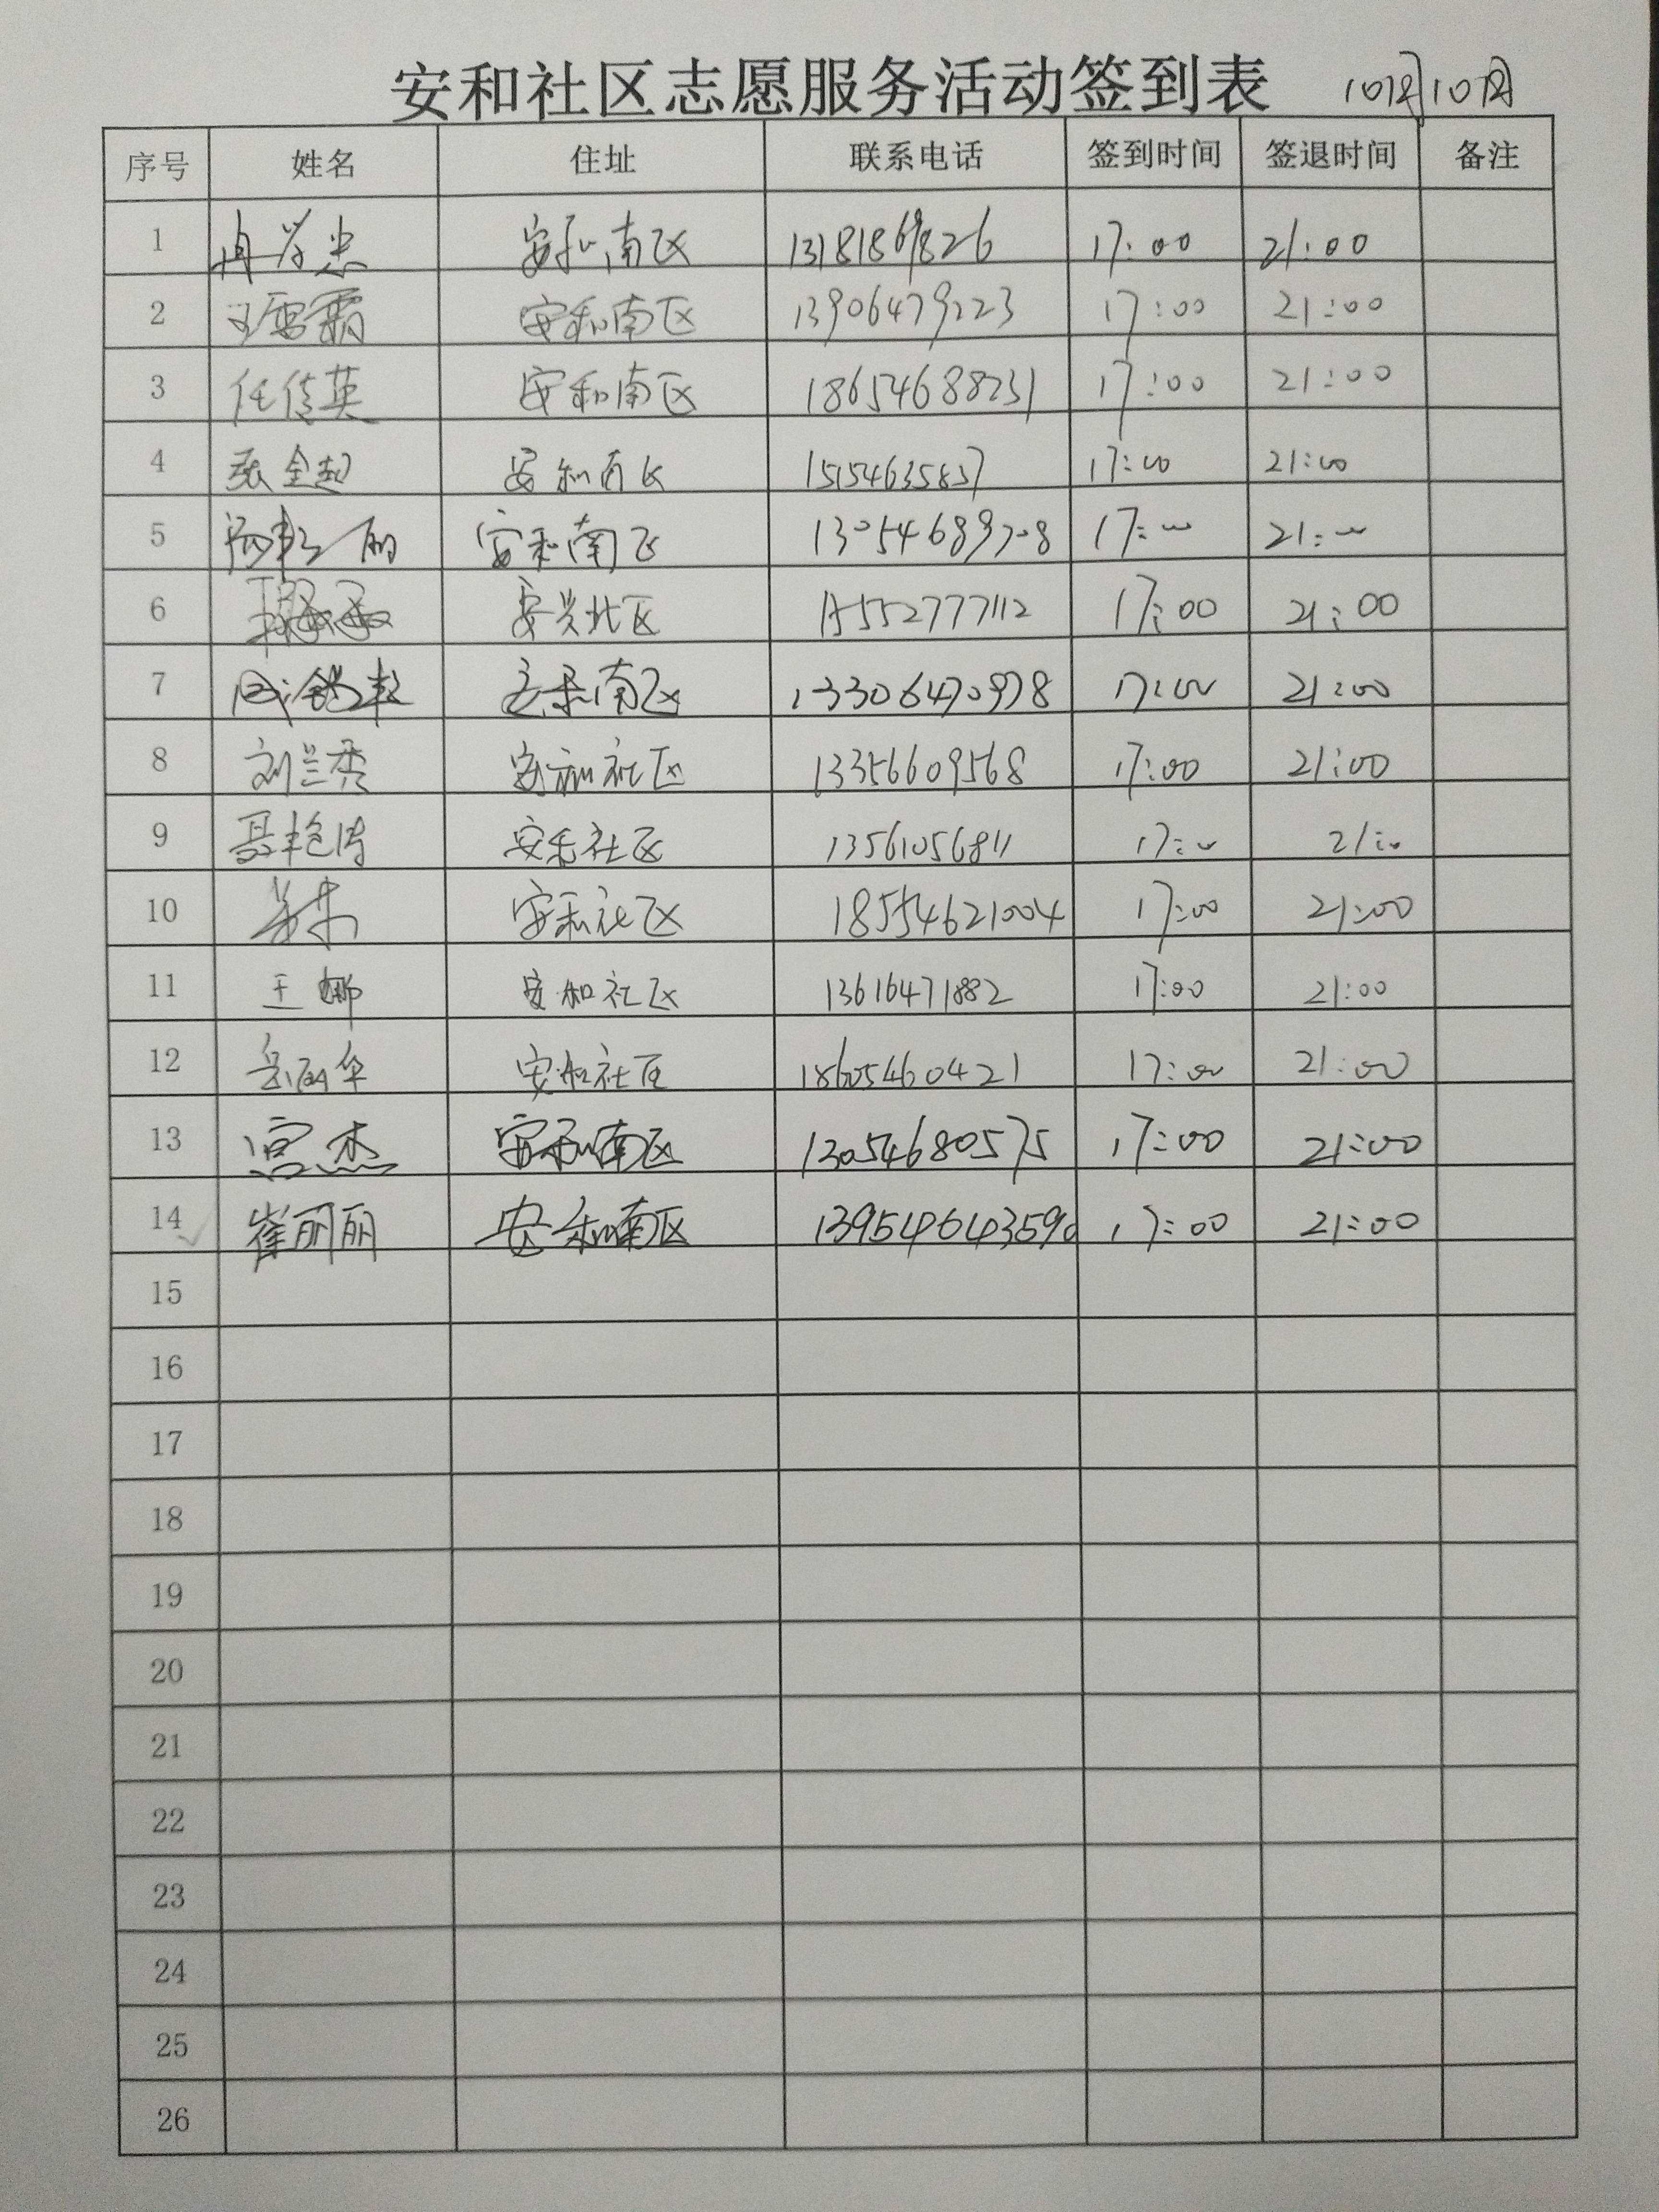 安和社区志愿服务活动签到表 10月10日
序号 姓名 住址 联系电话 签到时间 签退时间 备注
1 安和南区 13181869826 17:00 21:00
2 王雪霜 安和南区 13906479223 17:00 21:00
3 任传英 安和南区 18654688231 17:00 21:00
4 张全起 安和南区 15154635837 17:00 21:00
5 安和南区 13054689708 17:00 21:00
6 安兴北区 15552777112 17:00 21:00
7 安和南区 13306470978 17:00 21:00
8 刘兰秀 安和社区 13356609568 17:00 21:00
9 聂艳涛 安和社区 13561056811 17:00 21:00
10 安和社区 18554621004 17:00 21:00
11 王娜 安和社区 13616471882 17:00 21:00
12 岳丽华 安和社区 18605460421 17:00 21:00
13 宫杰 安和南区 13054680575 17:00 21:00
14 崔丽丽 安和南区 13954643590 17:00 21:00
15
16
17
18
19
20
21
22
23
24
25
26